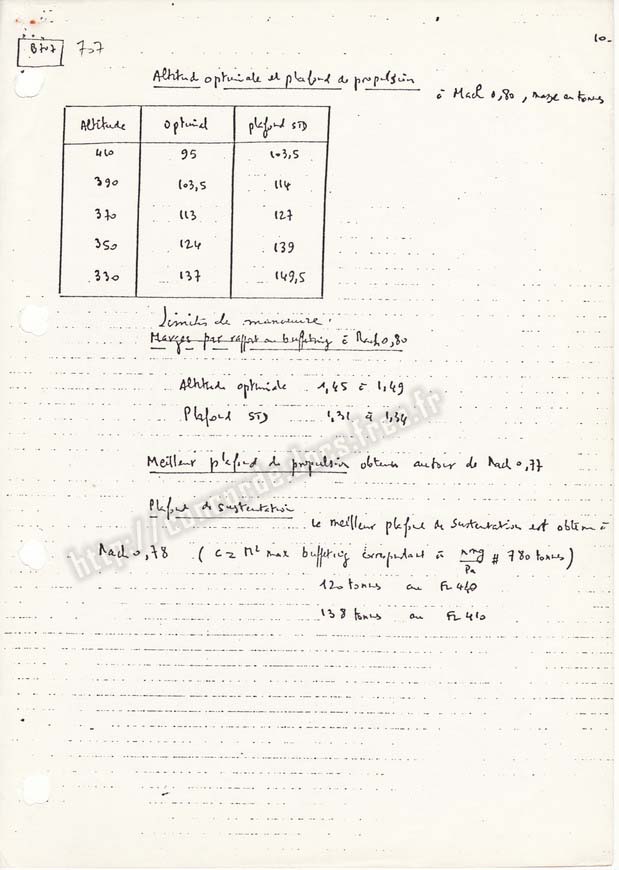 10-
B707 707
Altitude optimale et plafond de propulsion
à Mach 0,80, masse en tonnes
Altitude Optimal plafond STD
410 95 103,5
390 103,5 114
370 113 127
350 124 139
330 137 149,5
Limites de manoeuvre.
Marges par rapport au buffeting à Mach 0,80
Altitude optimale 1,45 à 1,49
Plafond STD 1,31 à 1,34
http://concordescopas.free.fr
Meilleur plafond de propulsion obtenu autour de Mach 0,77
Plafond de sustentation
Le meilleur plafond de sustentation est obtenu à
Mach 0,78 ( Cz M² max buffeting correspondant à nmg/Pa # 780 tonnes )
120 tonnes au FL 440
138 tonnes au FL 410